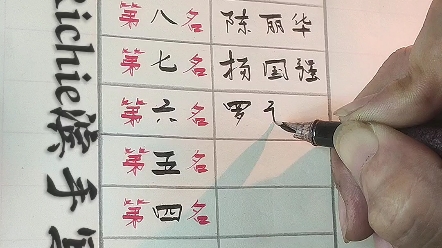 第八名 陈丽华
第七名 杨国强
第六名 罗
第五名
第四名
Richie漆手写